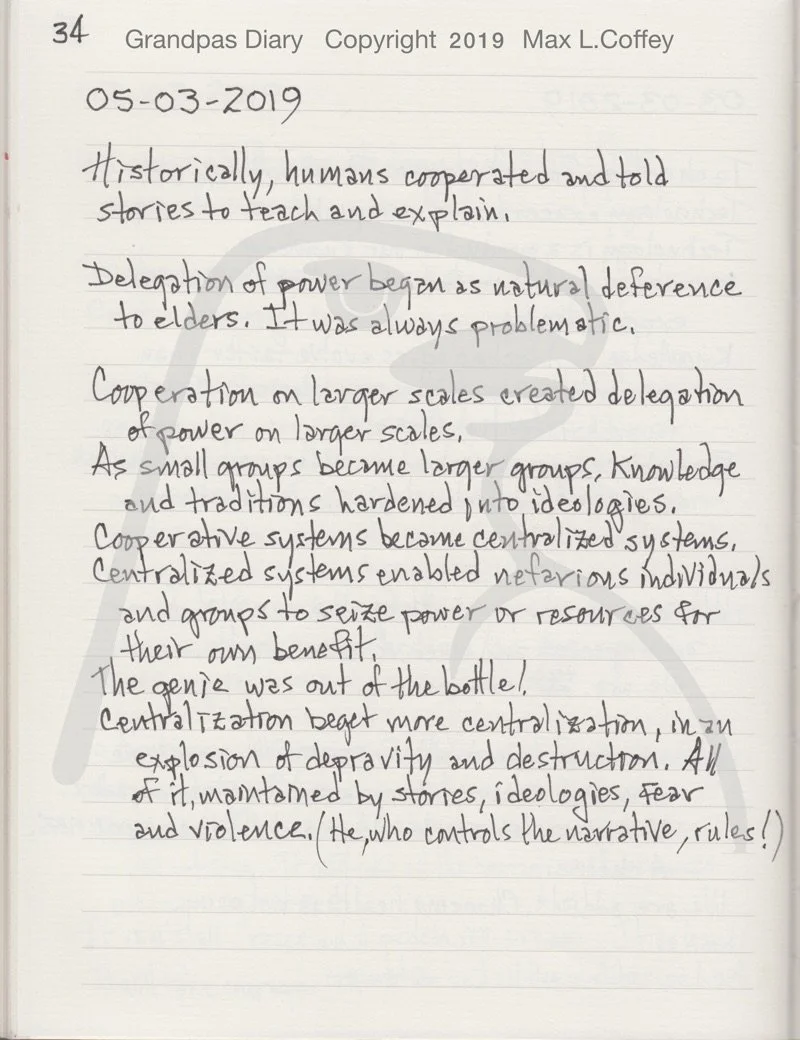 34 Grandpas Diary Copyright 2019 Max L.Coffey
05-03-2019
Historically, humans cooperated and told
stories to teach and explain.
Delegation of power began as natural deference
to elders. It was always problematic.
Cooperation on larger scales created delegation
of power on larger scales.
As small groups became larger groups, Knowledge
and traditions hardened into ideologies.
Cooperative systems became centralized systems.
Centralized systems enabled nefarious individuals
and groups to seize power or resources for
their own benefit.
The genie was out of the bottle!
Centralization beget more centralization, in an
explosion of depravity and destruction. All
of it, maintained by stories, ideologies, fear
and violence. (He, who controls the narrative, rules!)